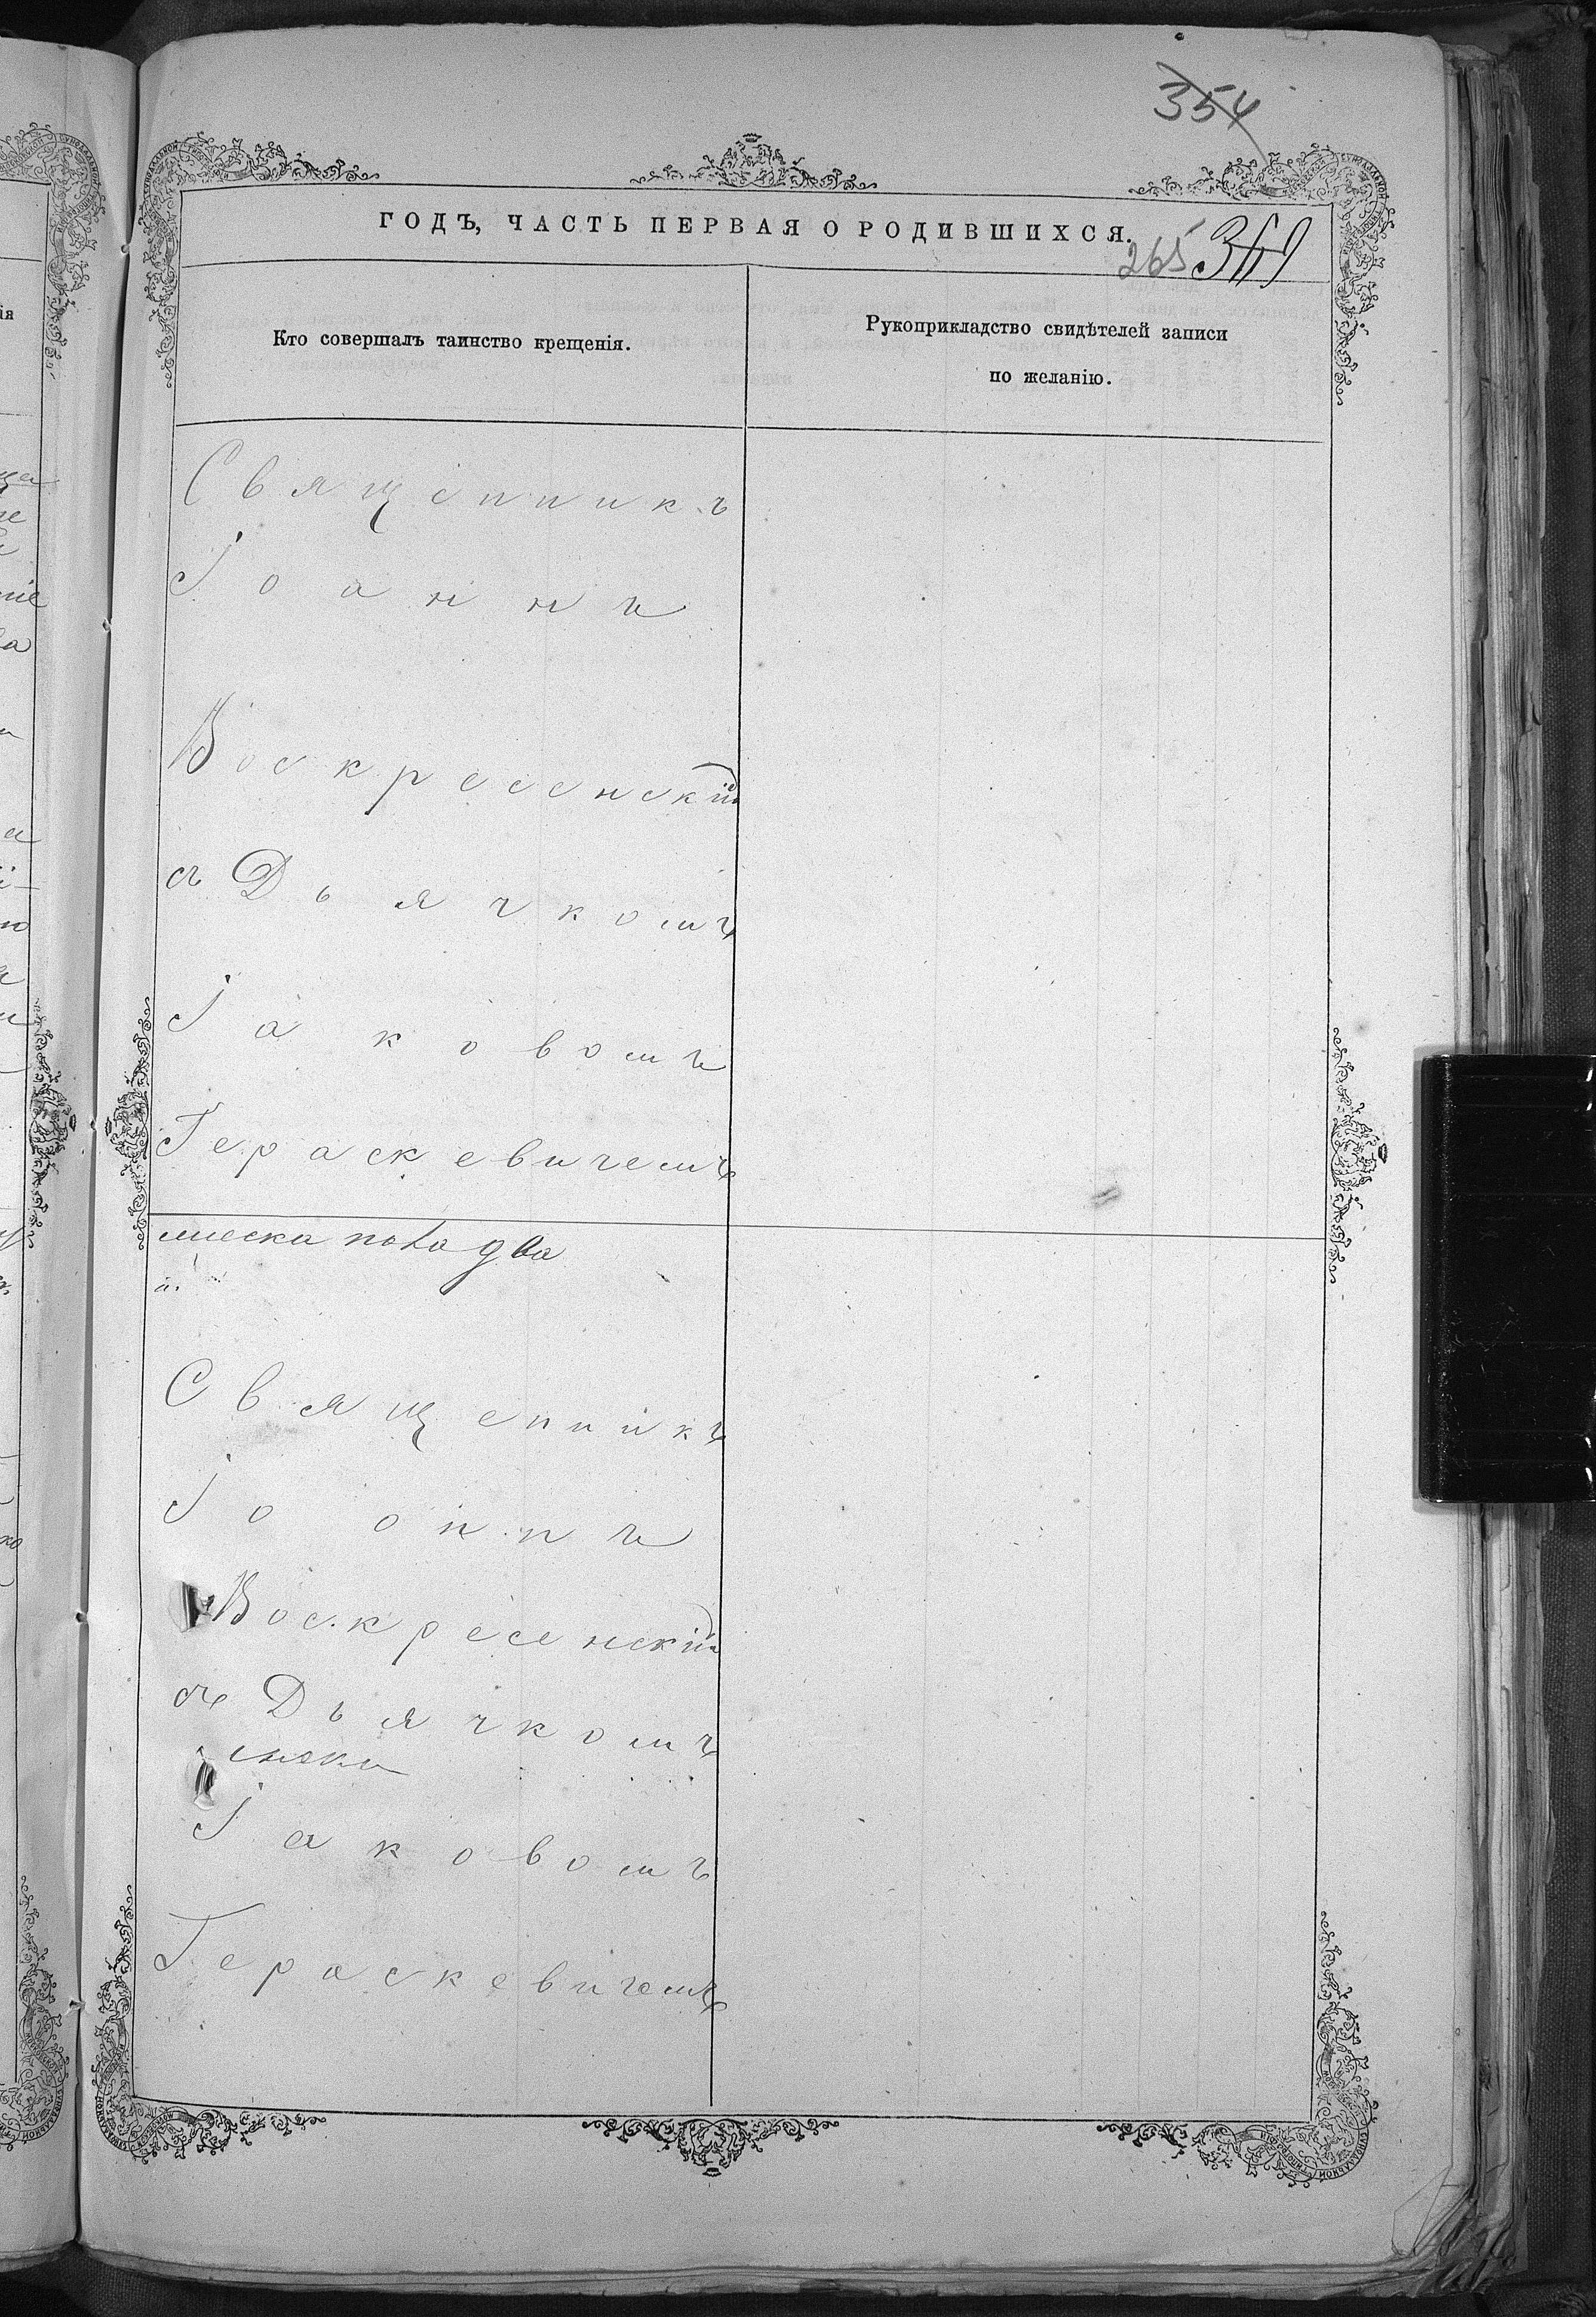 354
ГОДЪ, ЧАСТЬ ПЕРВАЯ О РОДИВШИХСЯ.
265
Кто совершалъ таинство крещенія.
Рукоприкладство свидѣтелей записи
по желанію.
Священникъ
Іоаннъ
Воскресенскій
съ Дьячкомъ
Іаковомъ
Гераскевичемъ
два
Священникъ
Іоаннъ
Воскресенскій
съ Дьячкомъ
Іаковомъ
Гераскевичемъ